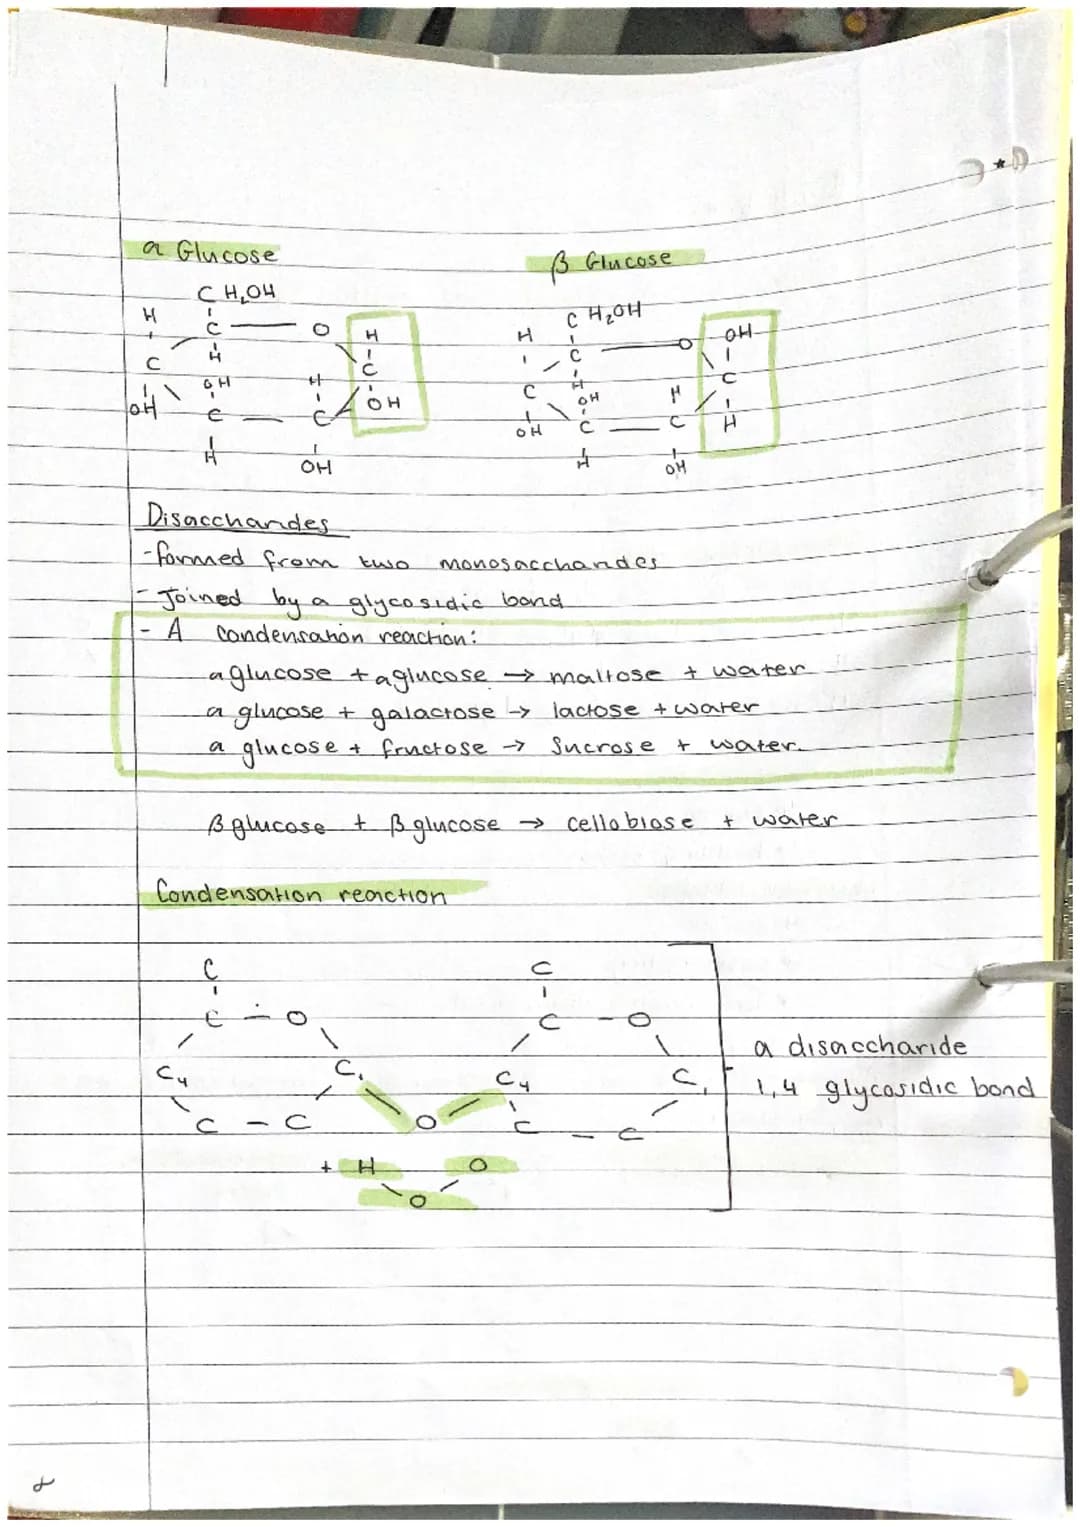 a Glucose
β Glucose
C H₂OH
H C O H
H C
C OH H OH
OH C C
H OH
C H₂OH
H C O OH
C H H C
OH C C H
OH H OH
Disaccharides
- formed from two monosaccharides
- Joined by a glycosidic bond
- A condensation reaction:
a glucose + a glucose → maltose + water
a glucose + galactose → lactose + water
a glucose + fructose → Sucrose + water.
β glucose + β glucose → cellobiose + water
Condensation reaction
C C
C - O C - O
C₄ C₁ C₄ C₁
C - C O C - C
+ H O
O
a disaccharide
1,4 glycosidic bond